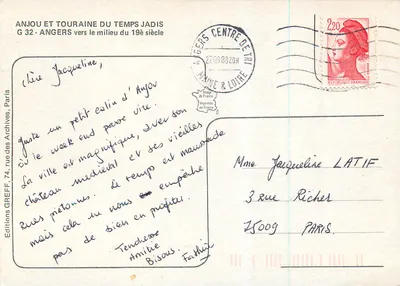 ANJOU ET TOURAINE DU TEMPS JADIS
G 32 - ANGERS vers le milieu du 19è siècle
Chère Jacqueline,
Juste un petit coin d'Anjou
où le week end passe vite.
La ville est magnifique, avec son
château médiéval et ses vieilles
rues piétonnes. Le temps est maussade
mais cela nous empêche
pas de bien en profiter.
Tendresse
Amitié
Bisous.
Editions GREFF, 74, rue des Archives, Paris
ANGERS CENTRE DE TRI
MAINE & LOIRE
2,20
Mme Jacqueline LATIF
3 RUE Richer
75009 PARIS.